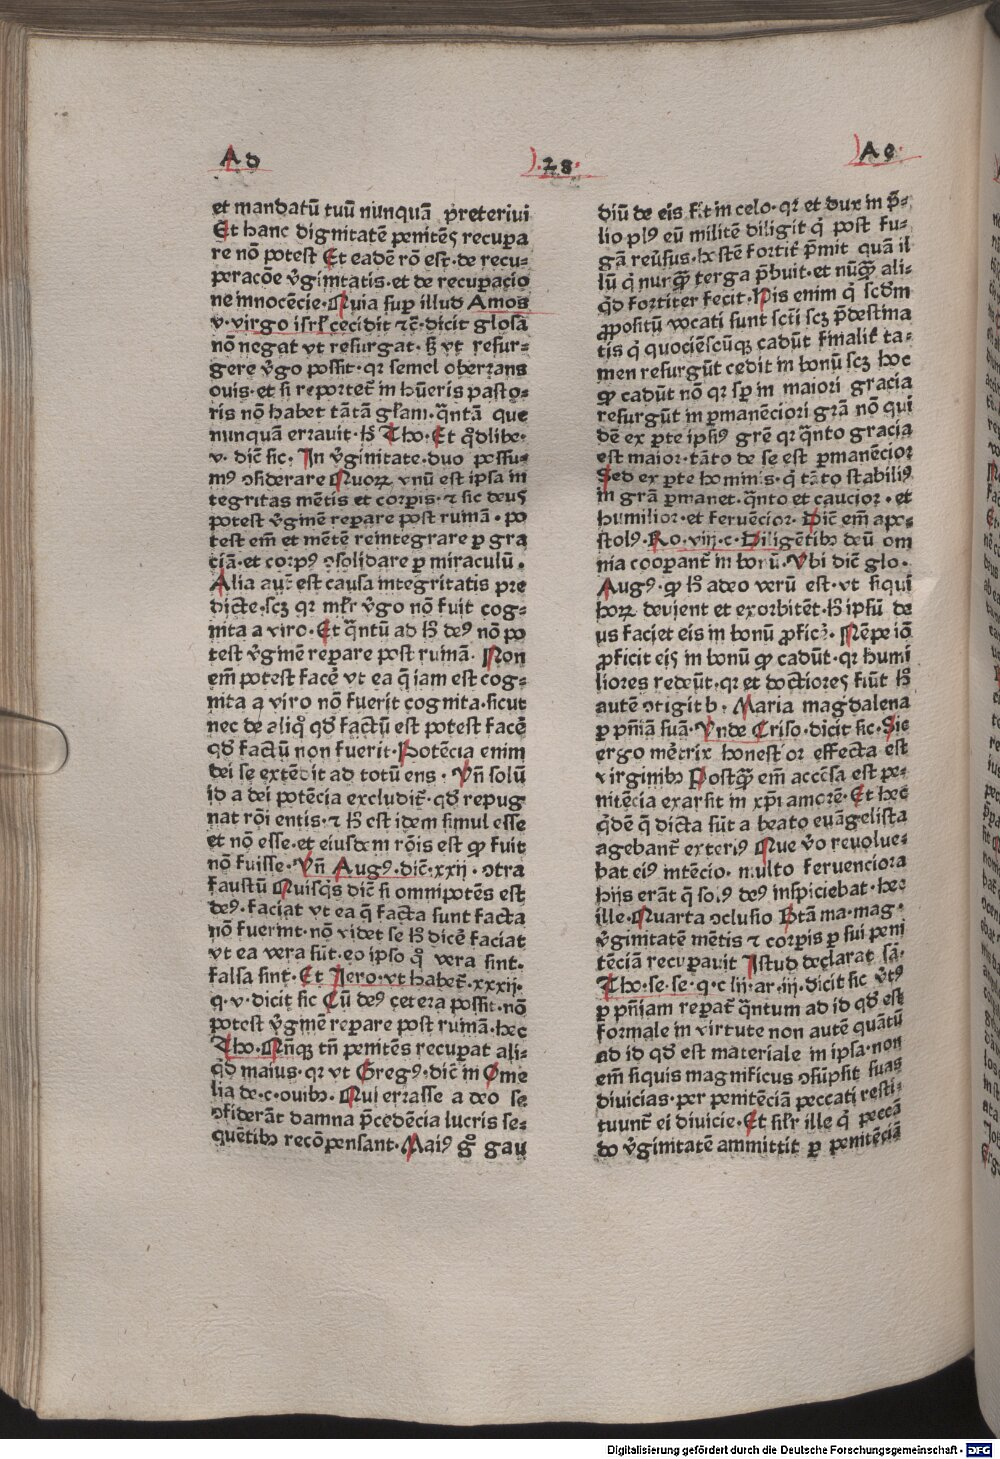 Ad
.28.
Ae.
et mandatū tuū nunquā preteriui
Et hanc dignitatē penitēs recupa
re nō potest Et eadē rō est. de recu-
peracōe v̄ginitatis. et de recuperacio
ne innocēcie. Quia sup illud Amos
v. virgo isrl̄ cecidit ⁊c̄. dicit glosa
nō negat vt resurgat. sꝫ vt resur-
gere v̄go possit. qꝛ semel oberrans
ouis. et si reportet̄ in hūeris pasto-
ris nō habet tātā gl̄am. q̄ntā que
nunquā errauit. h̄ Tho. Et qͦdlibe.
v. dic̄ sic. In v̄ginitate. duo possu-
mꝰ ↄsiderare Quoꝝ vnū est ipsa in
tegritas mētis et corpis. ⁊ sic deus
potest v̄ginē reꝑare post ruinā. po
test em̄ et mētē reintegrare ꝑ gra
ciā. et corpꝰ ↄsolidare ꝑ miraculū.
Alia aut̄ est causa integritatis pre
dicte. scꝫ qꝛ mlr̄ v̄go nō fuit cog-
nita a viro. Et q̄ntū ad h̄ deꝰ nō po
test v̄ginē reꝑare post ruinā. Non
em̄ potest facē vt ea q̄ iam est cog-
nita a viro nō fuerit cognita. sicut
nec de aliqͦ qd̄ factū est potest facē
qd̄ factū non fuerit. Potēcia enim
dei se extēdit ad totū ens. Vn̄ solū
id a dei potēcia excludit̄. qd̄ repug
nat rōi entis. ⁊ h̄ est idem simul esse
et nō esse. et eiusdem rōis est ꝙ fuit
nō fuisse. Vn̄ Augꝰ. dic̄. xxij. ↄtra
faustū Quisqͥs dic̄ si omnipotēs est
deꝰ. faciat vt ea q̄ facta sunt facta
nō fuerint. nō videt se h̄ dicē faciat
vt ea vera sūt. eo ipso qͦ vera sint.
falsa sint. Et Jero. vt habet̄. xxxij.
q. v. dicit sic Cū deꝰ cetera possit. nō
potest v̄ginē reꝑare post ruinā. hec
Tho. Nn̄qꝫ tn̄ penitēs recuꝑat ali-
qͥd maius. qꝛ vt Gregꝰ. dic̄ in Ome
lia de. c. ouibꝫ. Qui errasse a deo se
ↄsiderāt damna p̄cedēcia lucris se-
quētibꝫ recōpensant. Maiꝰ gͦ gau
diū de eis fit in celo. qꝛ et dux in p̄-
lio plꝰ eū militē diligit qͥ post fu-
gā reūsus. hostē fortit̄ p̄mit quā il
lū qͥ nūqꝫ terga p̄buit. et nūqꝫ ali-
qͥd fortiter fecit. His enim qͥ scd̄m
ꝓpositū vocati sunt scti scꝫ p̄destina
tis qͥ quociēscūqꝫ cadūt finalit̄ ta-
men resurgūt cedit in bonū scꝫ hoc
ꝙ cadūt nō qꝛ sꝑ in maiori gracia
resurgūt in ꝑmanēciori grā nō qui
dē ex ꝑte ipsiꝰ grē qꝛ q̄nto gracia
est maior. tāto de se est ꝑmanēcior
Sed ex ꝑte hominis. qͥ tāto stabiliꝰ
in grā ꝑmanet. q̄nto et caucior. et
humilior. et feruēcior. Dic̄ em̄ apo-
stolꝰ. Ro. viij. c. Diligētibꝫ deū om
nia cooꝑant̄ in bonū. Vbi dic̄ glo.
Augꝰ. ꝙ h̄ adeo verū est. vt siqui
hoꝝ deuient et exorbitēt. h̄ ipsū de
us faciet eis in bonū ꝓficē. Nēpe iō
ꝓficit eis in bonū ꝙ cadūt. qꝛ humi
liores redeūt. qꝛ et doctiores fiūt h̄
autē ↄtigit b. Maria magdalena
ꝑ pn̄iā suā. Vnde Criso. dicit sic. Sic
ergo mētrix honestior effecta est
virginibꝫ Postqꝫ em̄ accēsa est pe-
nitēcia exarsit in xp̄i amorē. Et hec
qͥdē q̄ dicta sūt a beato euāgelista
agebant̄ exteriꝰ Que v̄o reuolue-
bat eiꝰ intēcio. multo feruenciora
hijs erāt q̄ solꝰ deꝰ inspiciebat. hec
ille. Quarta ↄclusio Btā ma. mag.
v̄ginitatē mētis ⁊ corpis ꝑ sui peni
tēciā recuꝑauit Istud declarat sā.
Tho. se. se. q. c lij. ar. iij. dicit sic v̄tꝰ
ꝑ pn̄iam reꝑat̄ q̄ntum ad id qd̄ est
formale in virtute non autē quātū
ad id qd̄ est materiale in ipsa. non
em̄ siquis magnificus ↄsūpsit suas
diuicias. per penitēciā peccati resti-
tuunt̄ ei diuicie. Et silr̄ ille qͥ peccā
do v̄ginitatē ammittit ꝑ penitēciā
Digitalisierung gefördert durch die Deutsche Forschungsgemeinschaft -
DFG